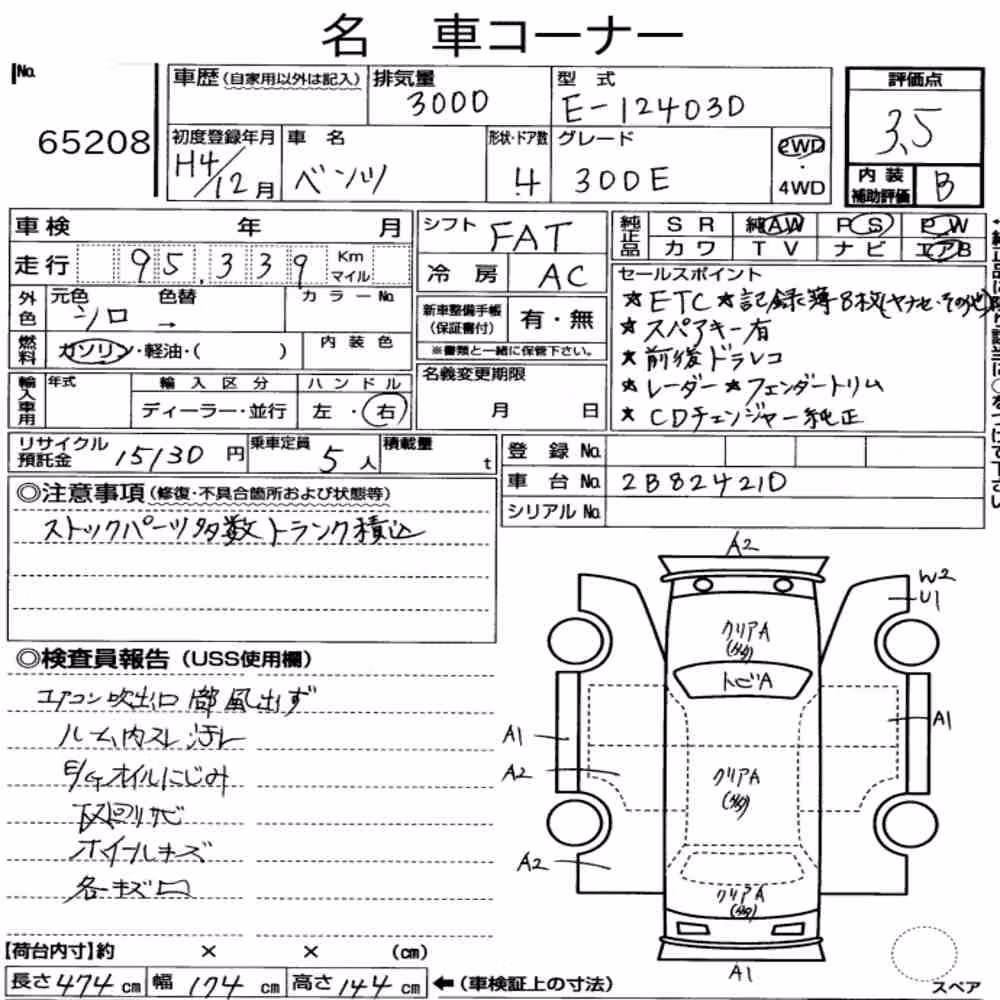 名 車コーナー
No.
65208
車歴(自家用以外は記入)
排気量
3000
型式
E-124030
評価点
3.5
初度登録年月
H4/12月
車名
ベンツ
形状・ドア数
4
グレード
300E
2WD
・
4WD
内装
補助評価
B
車検 年 月
走行 95,339 Km マイル
シフト
FAT
冷房
AC
純正品
SR 純AW PS PW
カワ TV ナビ エアB
外色
元色 色替
シロ →
カラーNo.
燃料
ガソリン・軽油・( )
内装色
新車整備手帳
(保証書付)
有・無
※書類と一緒に保管下さい。
セールスポイント
★ETC ★記録簿8枚(ヤナセ・その他)
★スペアキー有
★前後ドラレコ
★レーダー ★フェンダートリム
★CDチェンジャー純正
輸入車用
年式
輸入区分
ディーラー・並行
ハンドル
左・右
名義変更期限
月 日
リサイクル
預託金 15130円
乗車定員
5人
積載量
t
登録No.
車台No. 2B824210
シリアルNo.
◎注意事項(修復・不具合箇所および状態等)
ストックパーツ多数トランク積込
◎検査員報告(USS使用欄)
エアコン吹出口 部 風出ず
ルーム内スレ 汚レ
E/Gオイルにじみ
下回りサビ
ホイールキズ
各キズ凹
A2
W2
U1
クリアA
トビA
A1
A1
A2
クリアA
A2
クリアA
A1
スペア
【荷台内寸】約 × × (cm)
長さ474cm 幅174cm 高さ144cm ←(車検証上の寸法)